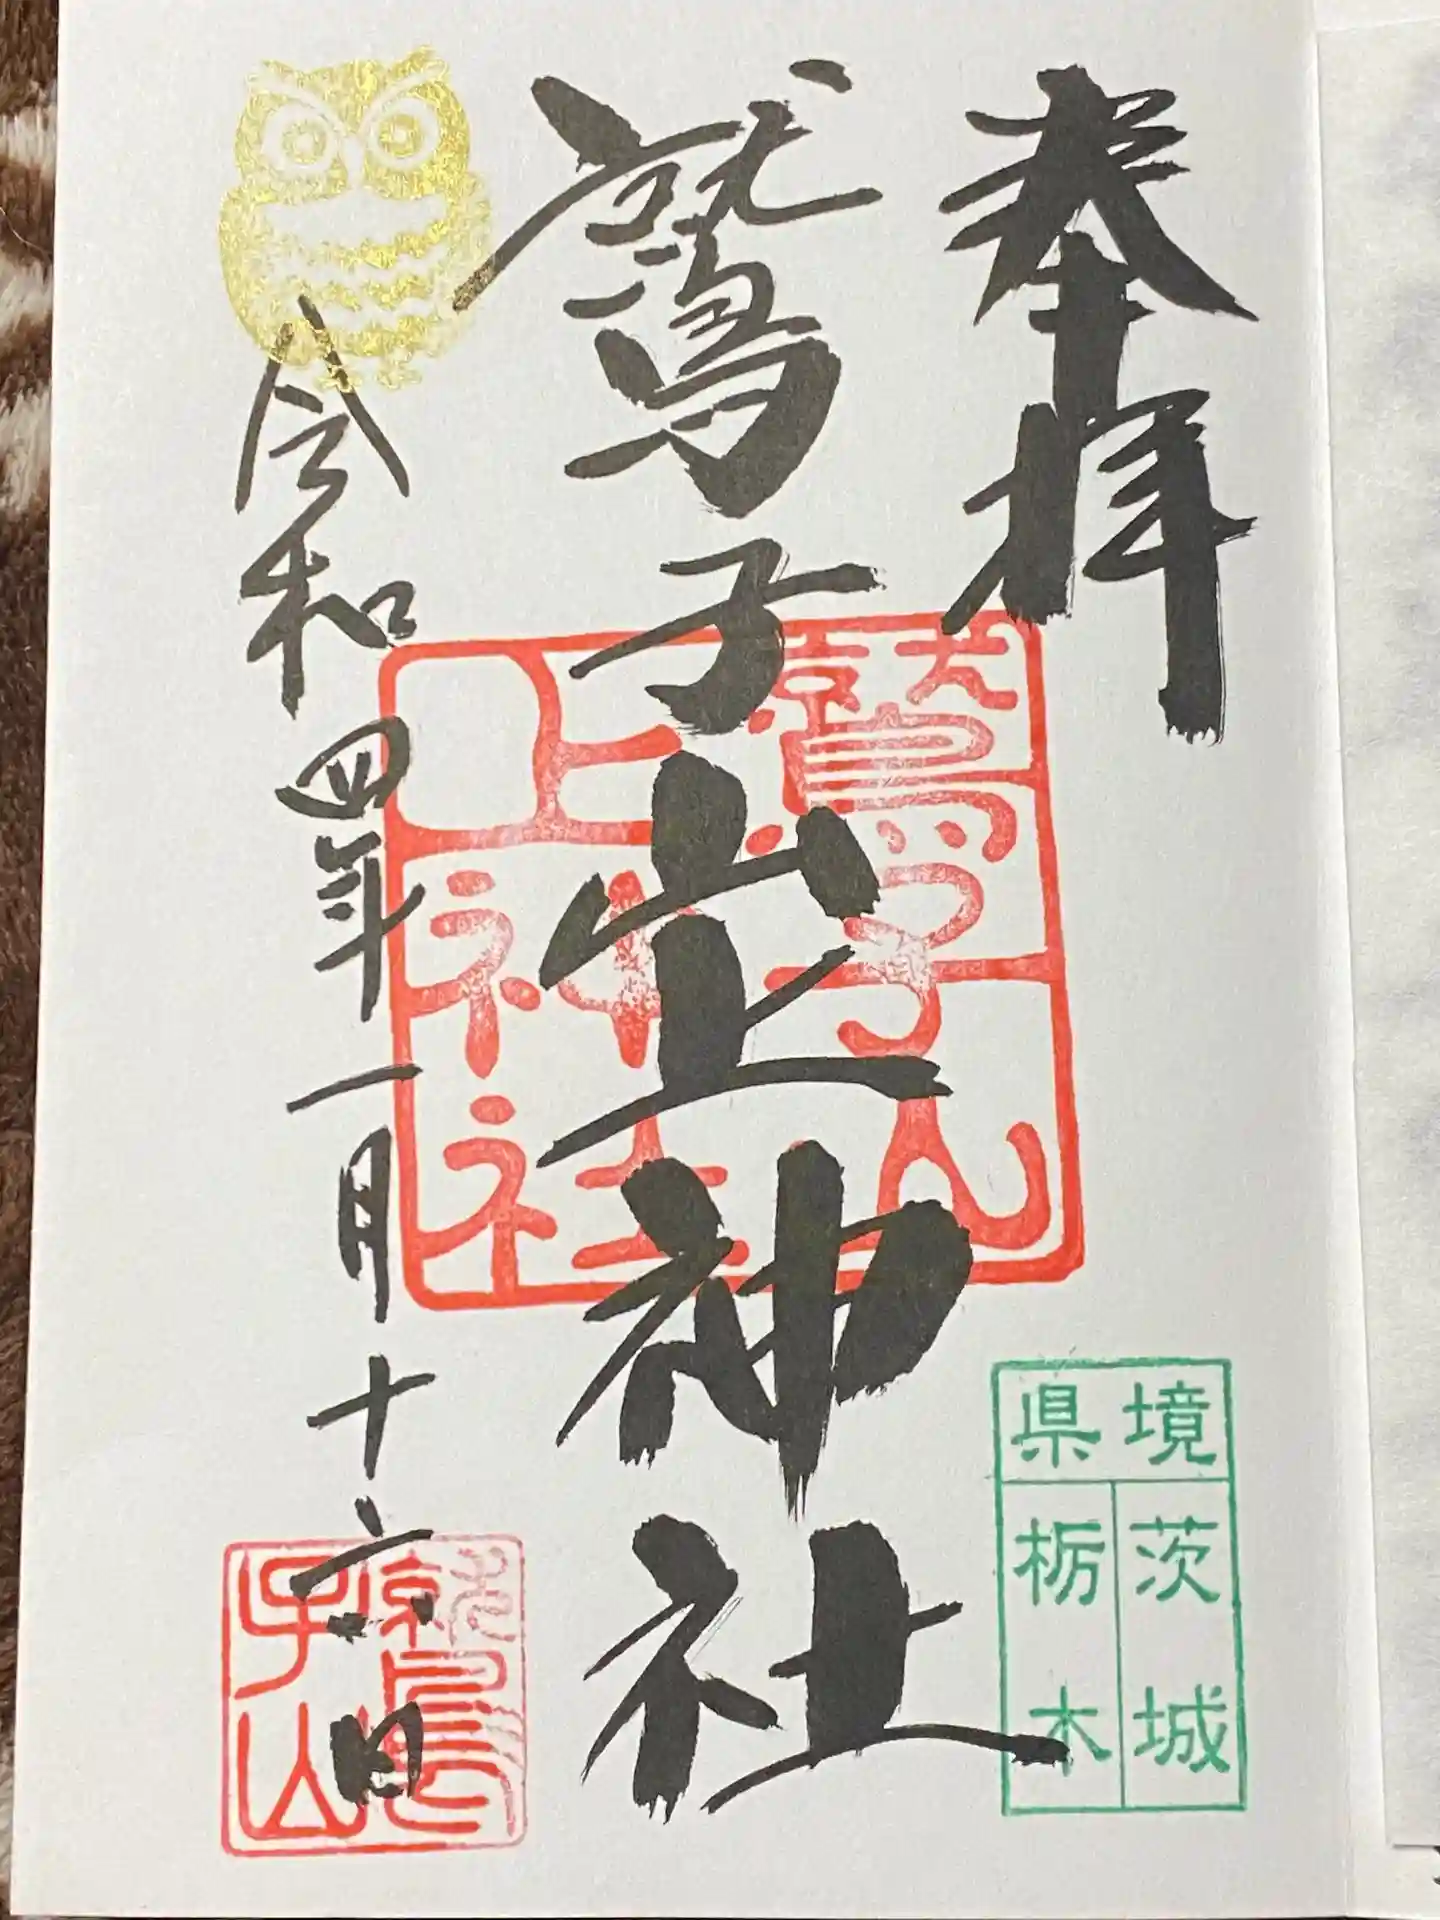 奉拝
鷲子山上神社
令和四年一月十六日
鷲子山
上神社
鷲子山
県境
茨城
栃木